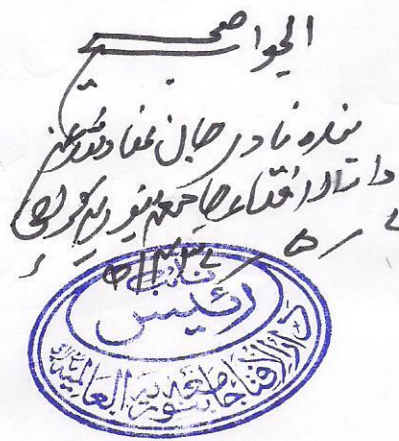 الجواب صحيح
بندہ نادر جان عفا اللہ عنہ
دارالافتاء جامعہ بنوریہ کراچی
نائب
رئیس
دارالافتاء جامعہ بنوریہ العالمیہ